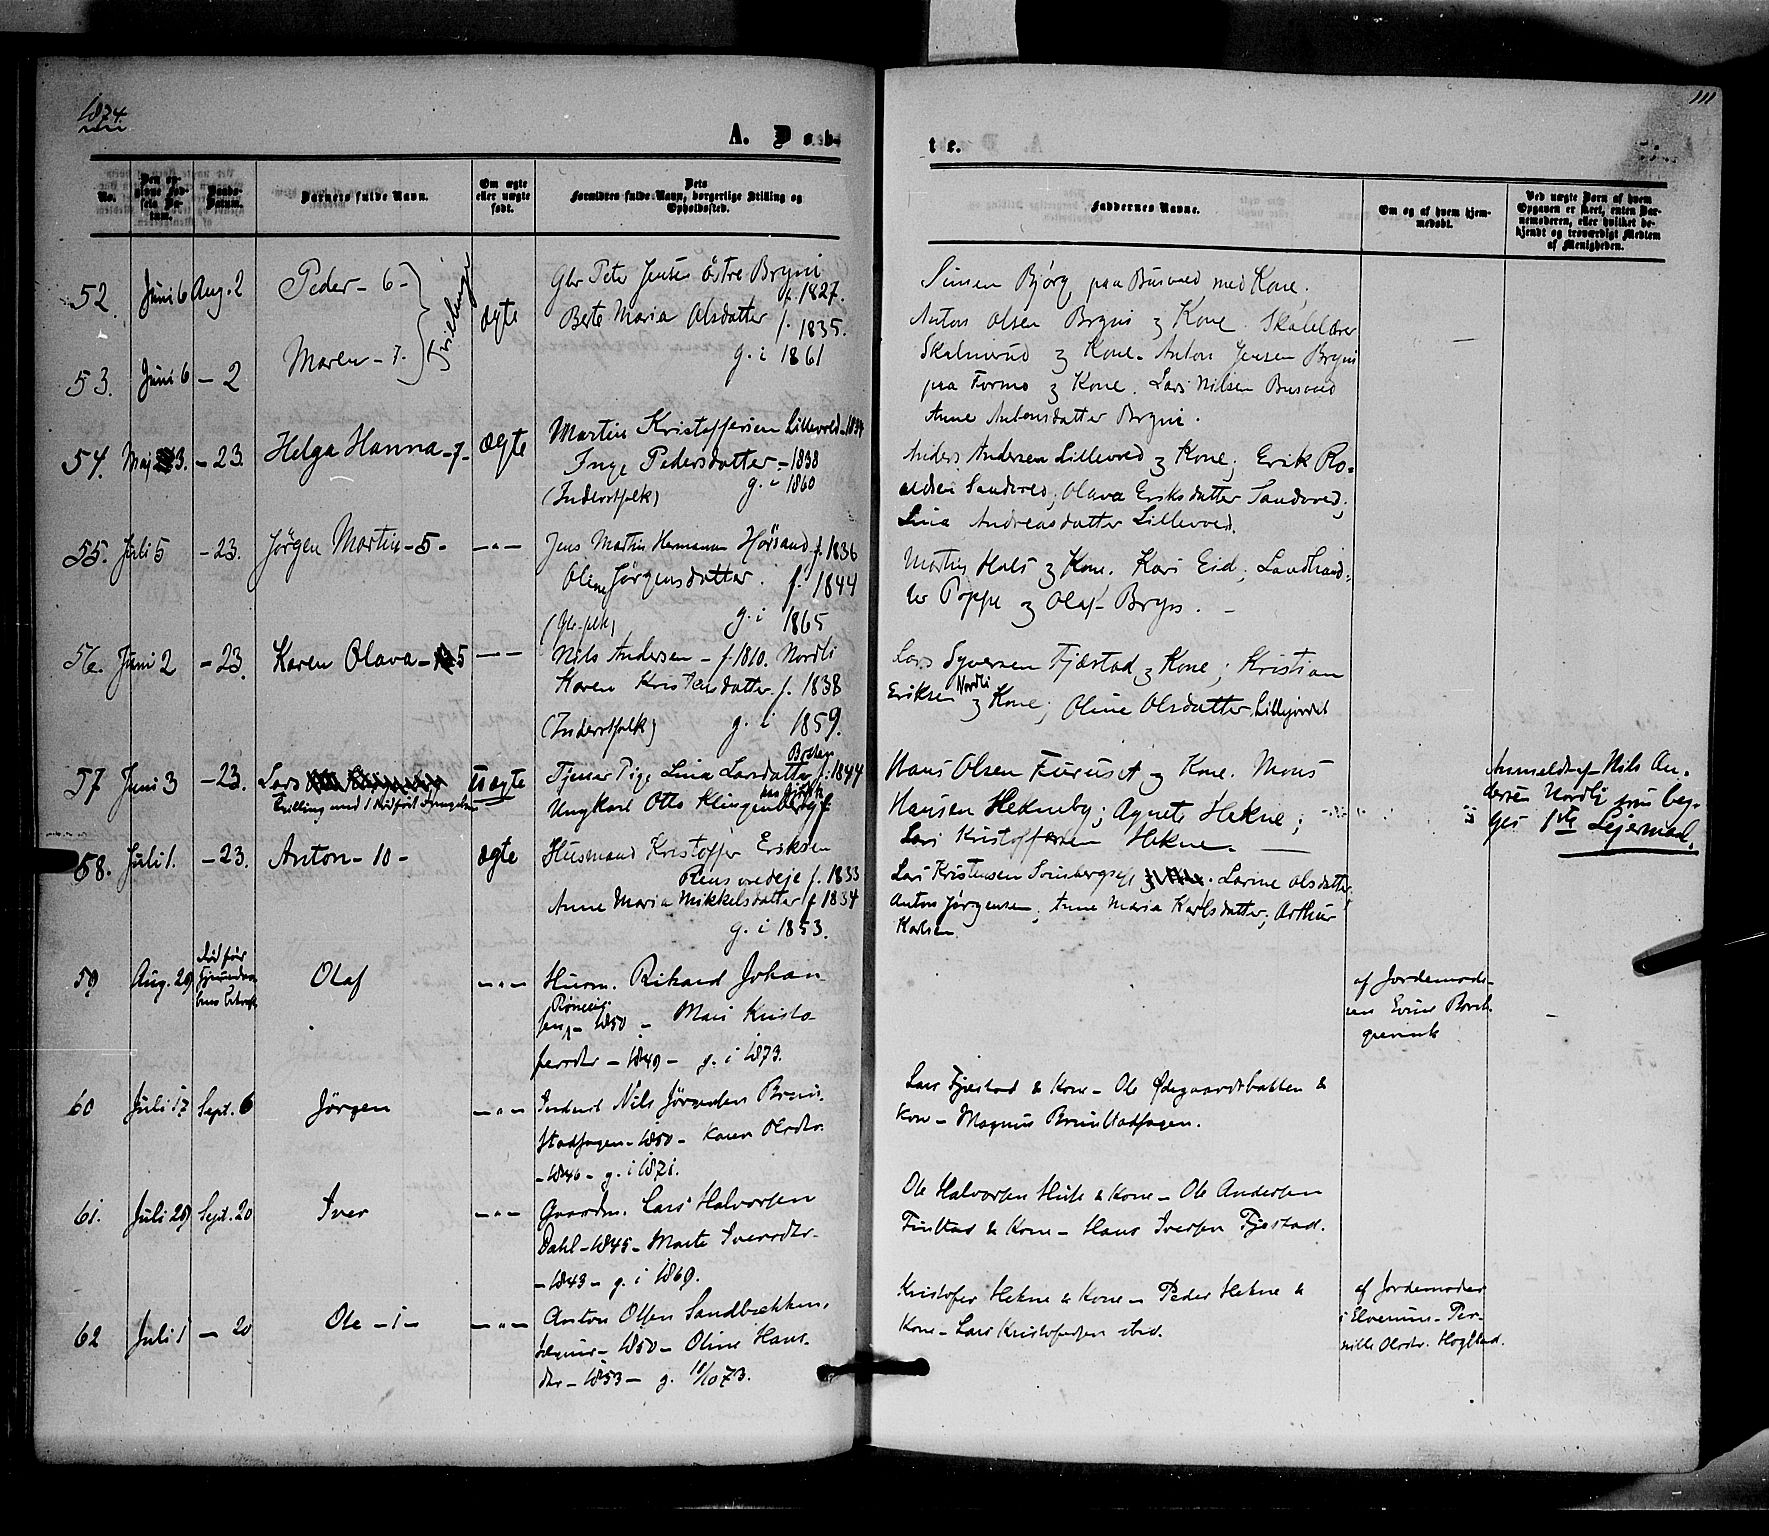 1874.
111
A. Døb-
te.
No.
Den opgivne Fødsels Datum.
Daabs-Datum.
Barnets fulde Navn.
Om ægte eller uægte født.
Dets Forældres fulde Navn, borgerlige Stilling og Opholdssted.
Faddernes Navne.
Om og af hvem hjemmedøbt.
Ved uægte Børn af hvem Opgaven er skeet, enten Barnemoderen, eller hvilket bekjendt og troværdigt Medlem af Menigheden.
52. Juni 6 Aug. 2 Peder - 6 - Tvillinger ægte
Gbr Peter Jensen östre Bryni
f. 1827.
Berte Maria Olsdatter f. 1835.
g. i 1861
53. Juni 6 - 2 Maren - 7.
Simen Bjørg paa Busved med Kone.
Anton Olsen Bryni og Kone. Skolelærer
og Kone. Anton Jensen Bryni
paa Formo og Kone. Lars Nilsen Busved
Anne Antonsdatter Bryni.
54. Maj 3. - 23. Helga Hanna - 7 - ægte
Martin Kristoffersen Lillevold - 1834
Inge Pedersdatter - 1838
(Inderstfolk) g. i 1860
Anders Andersen Lillevold og Kone; Erik Ro-
aldsen Sandvold; Olava Eriksdatter Sandvold;
Lina Andreasdatter Lillevold.
55. Juli 5 - 23. Jørgen Martin - 5 - - " -
Jens Martin Hermann Hørsand f. 1836
Oline Jørgensdatter. f. 1844
(Gbr.folk) g. i 1865
Martin Hals og Kone. Kari Eid; Landhand-
ler Poppe og Olaf Bryni. -
56. Juni 2 - 23. Karen Olava - 5 - " -
Nils Andersen - f. 1810. Nordli
Karen Kristensdatter f. 1838
(Inderstfolk) g. i 1859.
Lars Syversen Fjæstad og Kone; Kristian
Eriksen Nordli og Kone; Oline Olsdatter Lillejordet
57 Juni 3 - 23. Lars Uægte
Tvilling med 1 dødfødt
Tjener Pige Lina Larsdatter f. 1844
Ungkarl Otto Klingenberg f
Hans Olsen Furuset og Kone. Mons
Hansen Hekneby; Agnete Hekne;
Lars Kristoffersen Hekne. -
Anmeldt af Nils An-
dersen Nordli
1ste Lejermaal.
58. Juli 1. - 23. Anton - 10 - ægte
Husmand Kristoffer Eriksen
f. 1833
Anne Maria Mikkelsdatter f. 1834
g. i 1853.
Lars Kristensen . Larine Olsdatter
Anton Jørgensen; Anne Maria Karlsdatter; Arthur
Karlsen
59 Aug. 29 død før Olaf - " -
Husm. Rikard Johan-
sen - 1850 - Mari Kristo-
fersdtr - 1849 - g. i 1873.
af Jordemode-
ren
60 Juli 17 Sept. 6 Jørgen - " -
Inderst Nils Jørgensen Brun-
stadhagen - 1850 - Karen Olsdtr.
- 1846 - g. i 1871.
Lars Fjæstad & Kone - Ole Ødegaardsbakken &
Kone - Magnus Brunstadhagen.
61. Juli 29 Sept. 20 Iver - " -
Gaardm. Lars Halvorsen
Dahl - 1845 - Marte Iversdtr.
- 1843 - g. i 1869.
Ole Halvorsen & Kone - Ole Andersen
Finstad & Kone - Hans Iversen Fjæstad.
62 Juli 1 - 20 Ole - 1 - - " -
Anton Olsen Sandbækken,
- 1850 - Oline Hans-
dtr - 1853 - g. 18/10 73.
Kristofer Hekne & Kone - Peder Hekne &
Kone - Lars Kristofersen ibid.
af Jordemoder
i Elverum - Per-
nille Olsdtr. Hogstad.